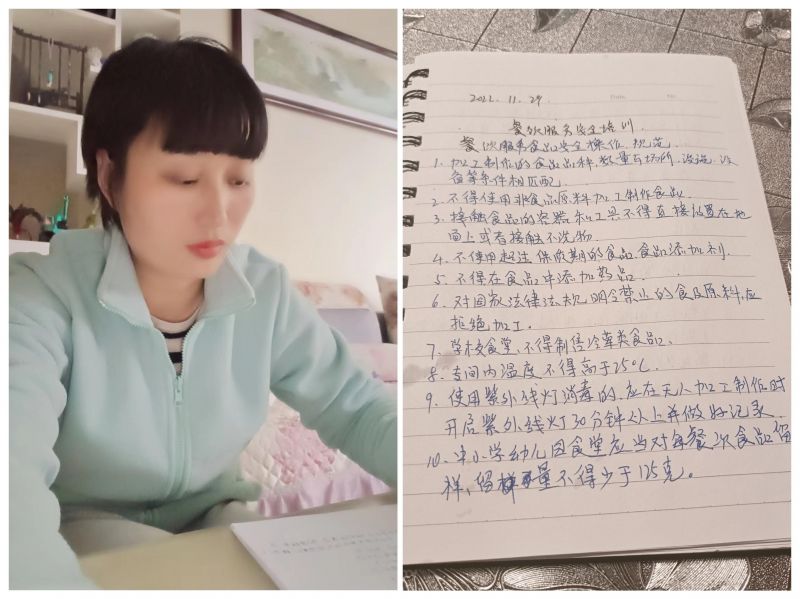 2022.11.29.
餐饮服务安全培训
餐饮服务食品安全操作规范
1. 加工制作的食品品种、数量与场所、设施、设
备等条件相匹配.
2. 不得使用非食品原料加工制作食品.
3. 接触食品的容器和工具不得直接放置在地
面上或者接触不洗物.
4. 不使用超过保质期的食品、食品添加剂.
5. 不得在食品中添加药品.
6. 对国家法律法规明令禁止的食及原料,应
拒绝加工.
7. 学校食堂、不得制售冷荤类食品、
8. 专间内温度不得高于25℃.
9. 使用紫外线灯消毒的,应在无人加工制作时
开启紫外线灯30分钟以上并做好记录
10. 中小学幼儿园食堂应当对每餐次食品留
样,留样量不得少于125克。